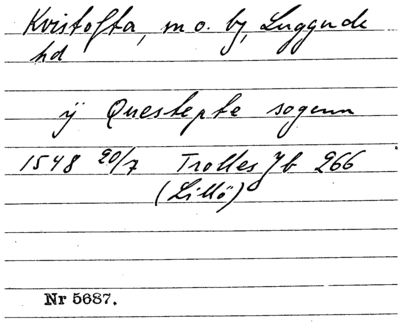 Kvistofta, m o. by, Luggude
hd
ÿ Questepte sogenn
1548 20/7 Trolles Jb 266
(Lillö)
Nr 5687.